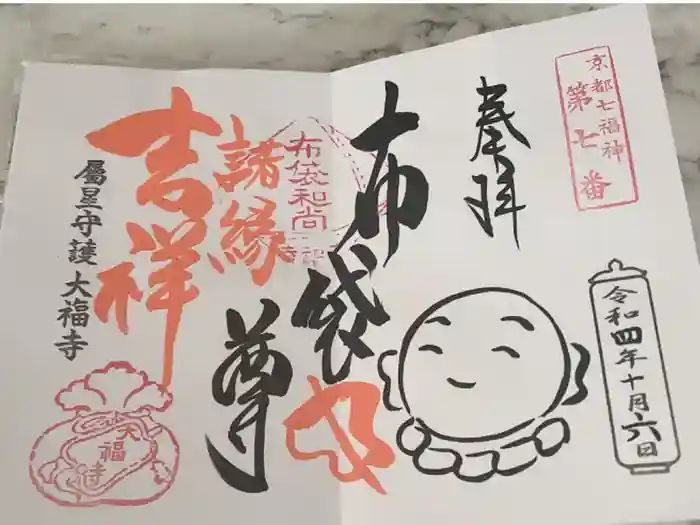 京都七福神
第七番
奉拝
令和四年十月六日
布袋
尊
布袋和尚
諸縁
吉祥
属星守護 大福寺
大福寺